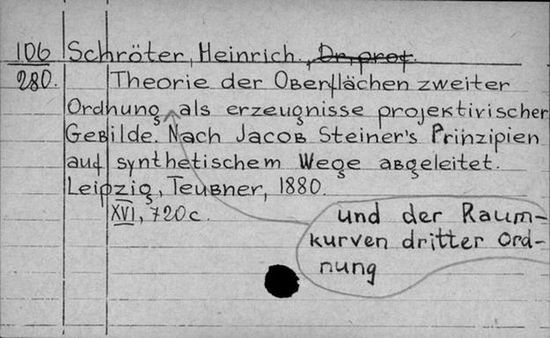 106 Schröter, Heinrich., Dr. prof.
280. Theorie der Oberflächen zweiter
Ordnung als erzeugnisse projektivischer
Gebilde. Nach Jacob Steiner's Prinzipien
auf synthetischem Wege abgeleitet.
Leipzig, Teubner, 1880.
XVI, 720 c.
und der Raum-
kurven dritter Ord-
nung